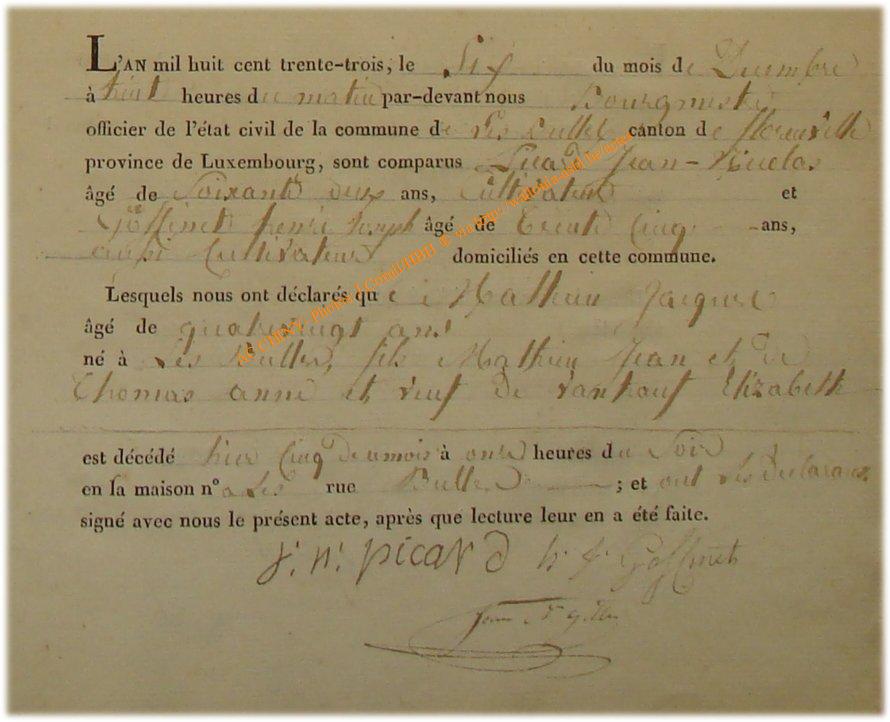 L'AN mil huit cent trente-trois, le Six du mois de Decembre
à huit heures du matin par-devant nous Bourgmestre
officier de l'état civil de la commune de Les Bulles canton de florenville
province de Luxembourg, sont comparus Picard Jean-Nicolas
âgé de Soixante deux ans, Cultivateur et
Goffinet henri Joseph âgé de Trente Cinq ans,
aussi Cultivateur domiciliés en cette commune.
Lesquels nous ont déclarés que Mathieu Jacques
âgé de quatrevingt ans
né à Les Bulles, fils Mathieu Jean et de
Thomas anne et veuf de Elizabeth
est décédé hier Cinq du mois à onze heures du Soir
en sa maison n° a Les rue Bulles ; et ont les declarans
signé avec nous le présent acte, après que lecture leur en a été faite.
J. N. picard h. J. Goffinet
AC CHINY Photos